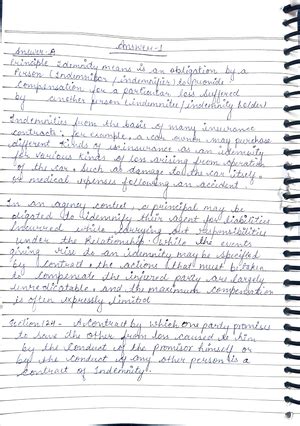 Answer-1
Answer-A
Principle Idemnity means is an obligation by a
Person (Indemnitor / indemnifier) to provide
compensation for a particular loss suffered
by another person (indemnitee / indemnity holder)
Indemnities from the basis of many insurance
contracts; for example, a car owner may purchase
different kinds of insurance as an indemnity
for various kinds of loss arising from operation
of the car, such as damage to the car itself,
or medical expenses following an accident.
In an agency context, a principal may be
obligated to indemnify their agent for liabilities
incurred while carrying out responsibilities
under the Relationship. While the events
giving rise to an indemnity may be specified
by contract, the actions that must be taken
to compensate the injured party are largely
unpredictable, and the maximum compensation
is often expressly limited
Section 124 - A contract by which one party promises
to save the other from loss caused to him
by the conduct of the promisor himself or
by the conduct of any other person is a
contract of Indemnity.